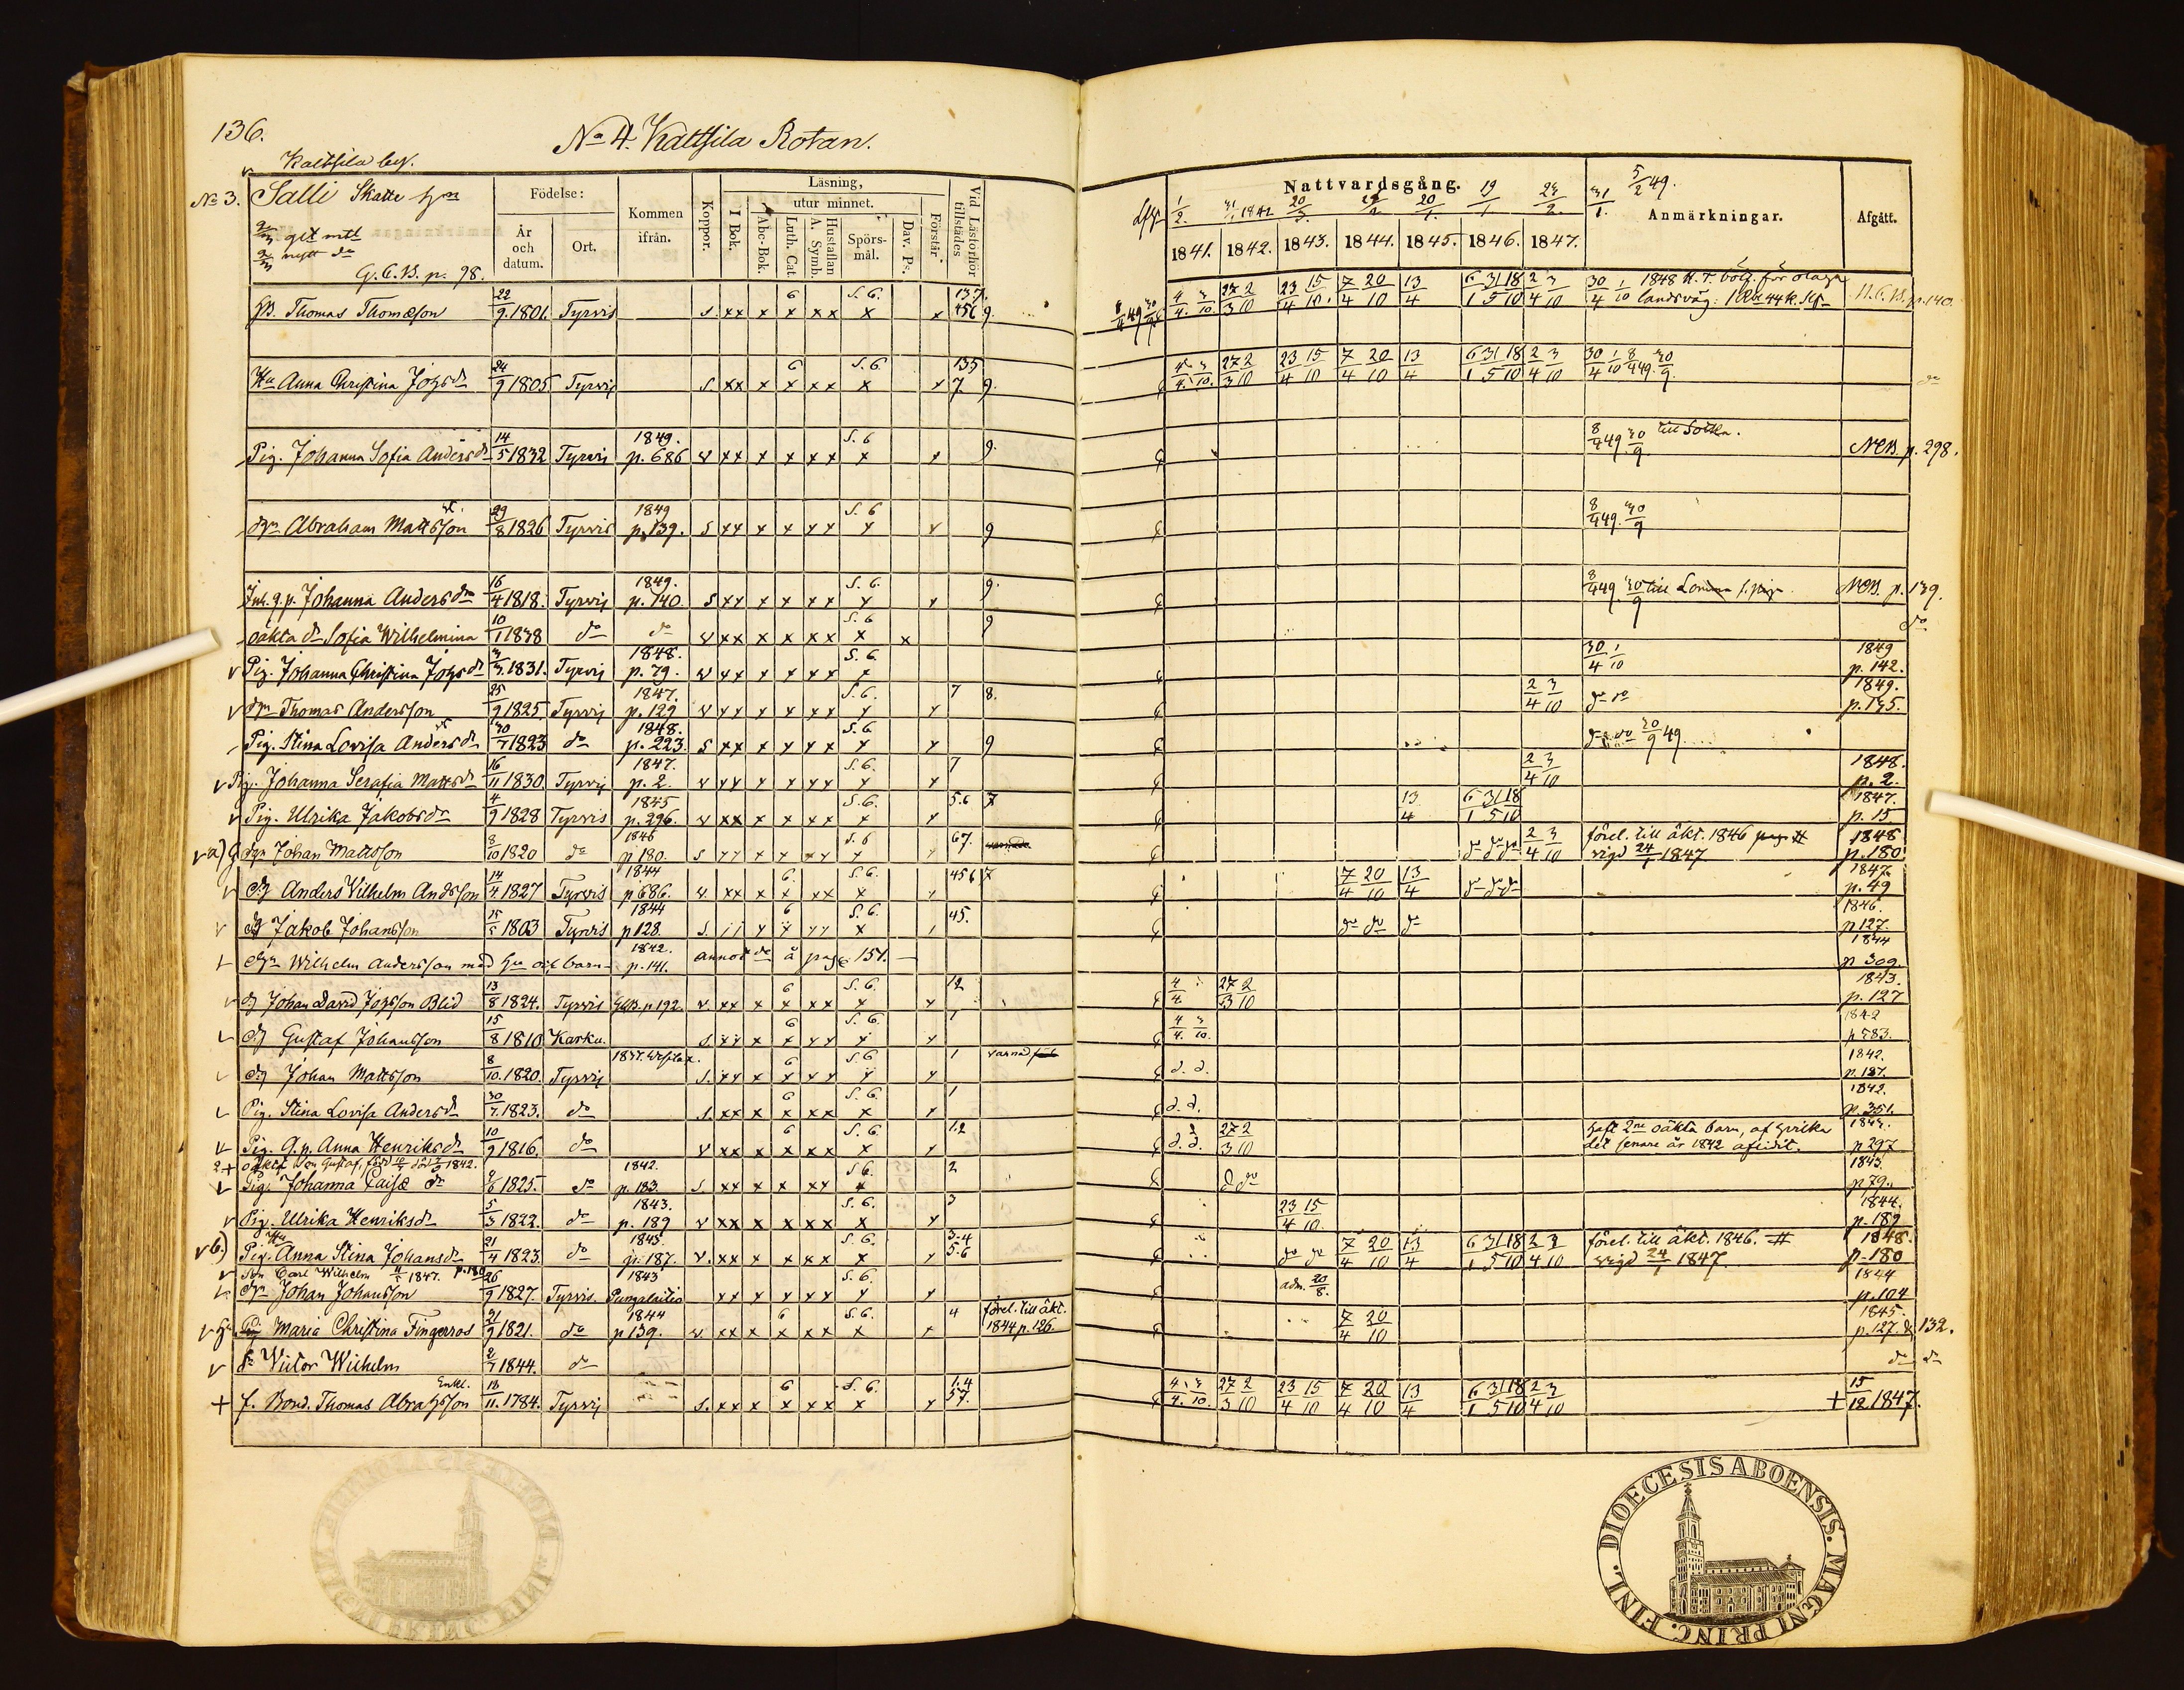 136.
No 4. Kaltsila Rotan.
Kaltsila by.
No 3. Salli Skatte hmn
G.C.B. p. 98.
Födelse:
År och datum.
Ort.
Kommen ifrån.
Koppor.
Läsning,
I Bok.
utur minnet.
Abc-Bok.
Luth. Cat.
Hustaflan A. Symb.
Spörsmål.
Dav. Ps.
Förstår
Vid Läsförhör tillstädes
Nattvardsgång.
1841. 1842. 1843. 1844. 1845. 1846. 1847.
5/2 49.
Anmärkningar.
Afgått.
Thomas Thomæson 22/9 1801. Tyrvis S. xx x x xx x x 137. 456 9. 4/4 3/10 27/3 2/10 23/4 15/10 7/4 20/10 13/4 6/1 31/5 18/10 2/4 3/10 30/4 1/10 1848 landsväg: N.C.B. p. 140.
Hu Anna Christina Johsdr 24/9 1805 Tyrvis S. xx x x xx x x 135 7 9. 4/4 3/10 27/3 2/10 23/4 15/10 7/4 20/10 13/4 6/1 31/5 18/10 2/4 3/10 30/4 1/10 8/4 49. 30/9 do
Pig. Johanna Sofia Andersdr 14/5 1832 Tyrvis 1849. p. 686 v xx x x xx S. 6 x x 9. 8/4 49 30/9 till Sotka. NCB. p. 298.
Drn Abraham Mattsson 29/8 1826 Tyrvis 1849 p. 139. S xx x x xx S. 6 x x 9 8/4 49. 30/9
Inh. q.p. Johanna Andersdr 16/4 1818. Tyrvis 1849. p. 140. S xx x x xx S. 6. x x 9. 8/4 49. 30/9 NCB. p. 139.
oäkta dr Sofia Wilhelmina 10/1 1838 do do v xx x x xx S. 6 x x 9 do
Pig. Johanna Christina Johsdr 3/3 1831. Tyrvis 1848. p. 79. v xx x x xx S. 6. x 30/4 1/10 1849 p. 142.
Drn Thomas Andersson 25/9 1825. Tyrvis 1847. p. 129 v xx x x xx S. 6. x x 7 8. 2/4 3/10 do do 1849. p. 135.
Pig. Stina Lovisa Andersdr 30/7 1823 do 1848. p. 223. S xx x x xx S. 6 x x 9 do do 30/9 49
Pig. Johanna Serafia Mattsdr 16/11 1830. Tyrvis 1847. p. 2. v xx x x xx S. 6. x x 7 2/4 3/10 1848. p. 2.
Pig. Ulrika Jakobsdr 4/9 1828 Tyrvis 1845 p. 296. v xx x x xx S. 6. x x 5.6 7 13/4 6/1 31/5 18/10 1847. p. 15.
a) Drn Johan Mattsson 8/10 1820 do 1846 p 180. S xx x x xx S. 6 x 67. do do do 2/4 3/10 förel. till äkt. 1846 vigd 24/1 1847 1848 p. 180
Dr Anders Vilhelm Andsson 14/4 1827 Tyrvis 1844 p 686. v. xx x x xx S. 6. x x 456 7 7/4 20/10 13/4 do do do 1847. p. 49
Dr Jakob Johansson 15/5 1803 Tyrvis 1844 p 128. S. x x xx S. 6. x 45. do do do 1846. p 127.
Drn Wilhelm Andersson med hu och barn 1842. p. 141. annot. de å pag. 151. 1844 p 309.
Dr Johan David Johsson Blid 13/8 1824. Tyrvis GCB. p. 192. v. xx x x xx S. 6. x x 12 4/4 27/3 2/10 1843. p. 127
Dr Gustaf Johansson 15/8 1810 Karku. S. xx x x xx S. 6. x x 1 4/4 3/10 1842 p 783.
Dr Johan Mattsson 8/10. 1820. Tyrvis S. xx x x xx S. 6 x x 1 varnad d. d. 1842. p. 187.
Pig. Stina Lovisa Andersdr 30/7. 1823. do S. xx x x xx S. 6. x x 1 d. d. 1842. p. 351.
Pig. q.p. Anna Henriksdr 10/9 1816. do v xx x x xx S. 6. x x 1.2 d. d. 27/3 2/10 haft 2ne oäkta barn, af hvilka det senare år 1842 aflidit. 1843. p 297
oäkta son Gustaf, född 1842.
Pig. Johanna Caisæ dr 1825. do 1842. p. 183. S. xx x x xx S. 6. x 2 d do 1843. p 79.
Pig. Ulrika Henriksdr 5/3 1822. do 1843. p. 189 v xx x x xx S. 6. x x 3 23/4 15/10. 1844. p. 189
b) Pig. Hu Anna Stina Johansdr 21/4 1823. do 1843. p. 187. v. xx x x xx S. 6. x x 3-4 5-6 do do 7/4 20/10 13/4 6/1 31/5 18/10 2/4 3/10 förel. till äkt. 1846. # vigd 24/1 1847. 1848. p. 180
Son Carl Wilhelm 1847. p. 180
Drn Johan Johansson 26/9 1827. Tyrvis. 1843 Pungalaitio xx x x xx S. 6. x x adm. 20/8. 1844 p. 104
Maria Christina Fingerroos 21/9 1821. do 1844 p 139. v xx x x xx S. 6. x x 4 förel. till äkt. 1844 p. 126. 7/4 20/10 1845. p. 127. & 132.
Sr Victor Wilhelm 2/7 1844. do do do
+ f. Bond. Thomas Abrahsson Enkl. 18/11. 1784. Tyrvis S. xx x x xx S. 6. x x 1.4 57. 4/4 3/10 27/3 2/10 23/4 15/10 7/4 20/10 13/4 6/1 31/5 18/10 2/4 3/10 + 15/12 1847.
DIOECESIS ABOENSIS. MAGNI PRINC. FINL.